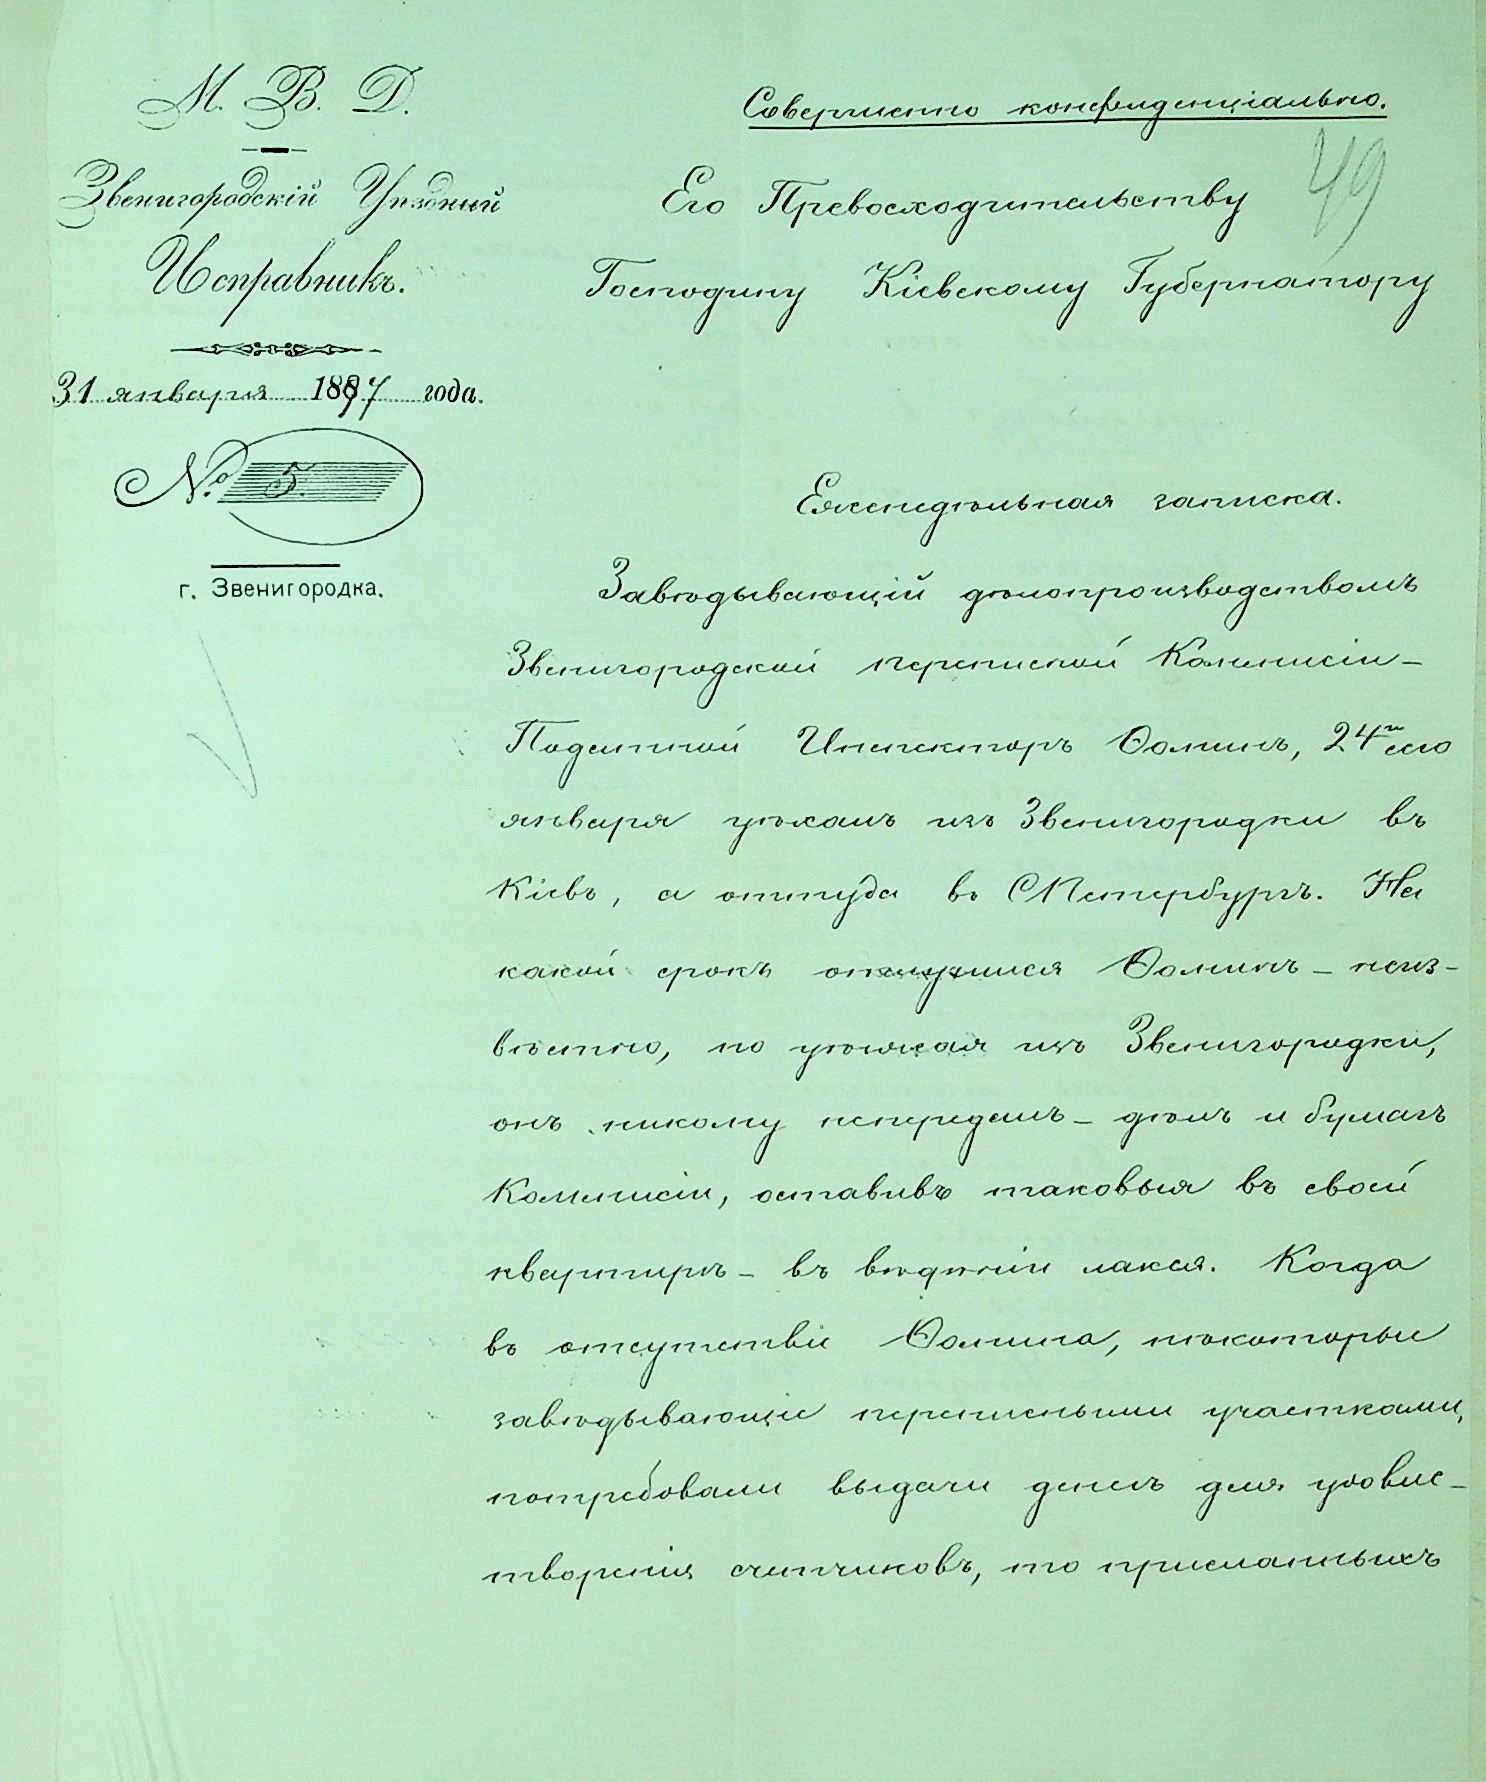 М. В. Д.
Звенигородскій Уѣздный
Исправникъ.
31 января 1897 года.
№ 5.
г. Звенигородка.
Совершенно конфиденціально.
49
Его Превосходительству
Господину Кіевскому Губернатору
Еженедѣльная записка.
Завѣдывающій дѣлопроизводствомъ
Звенигородской переписной Коммисіи –
Податной Инспекторъ Ѳоминъ, 24го сего
января уѣхалъ изъ Звенигородки въ
Кіевъ, а оттуда въ СПетербургъ. На
какой срокъ отлучился Ѳоминъ – неиз-
вѣстно, но уѣзжая изъ Звенигородки,
онъ никому непередалъ – дѣлъ и бумагъ
Коммисіи, оставивъ таковыя въ своей
квартирѣ – въ вѣдѣніи лакея. Когда
въ отсутствіе Ѳомина, нѣкоторые
завѣдывающіе переписными участками,
потребовали выдачи денегъ для удовле-
творенія счетчиковъ, то присланныхъ